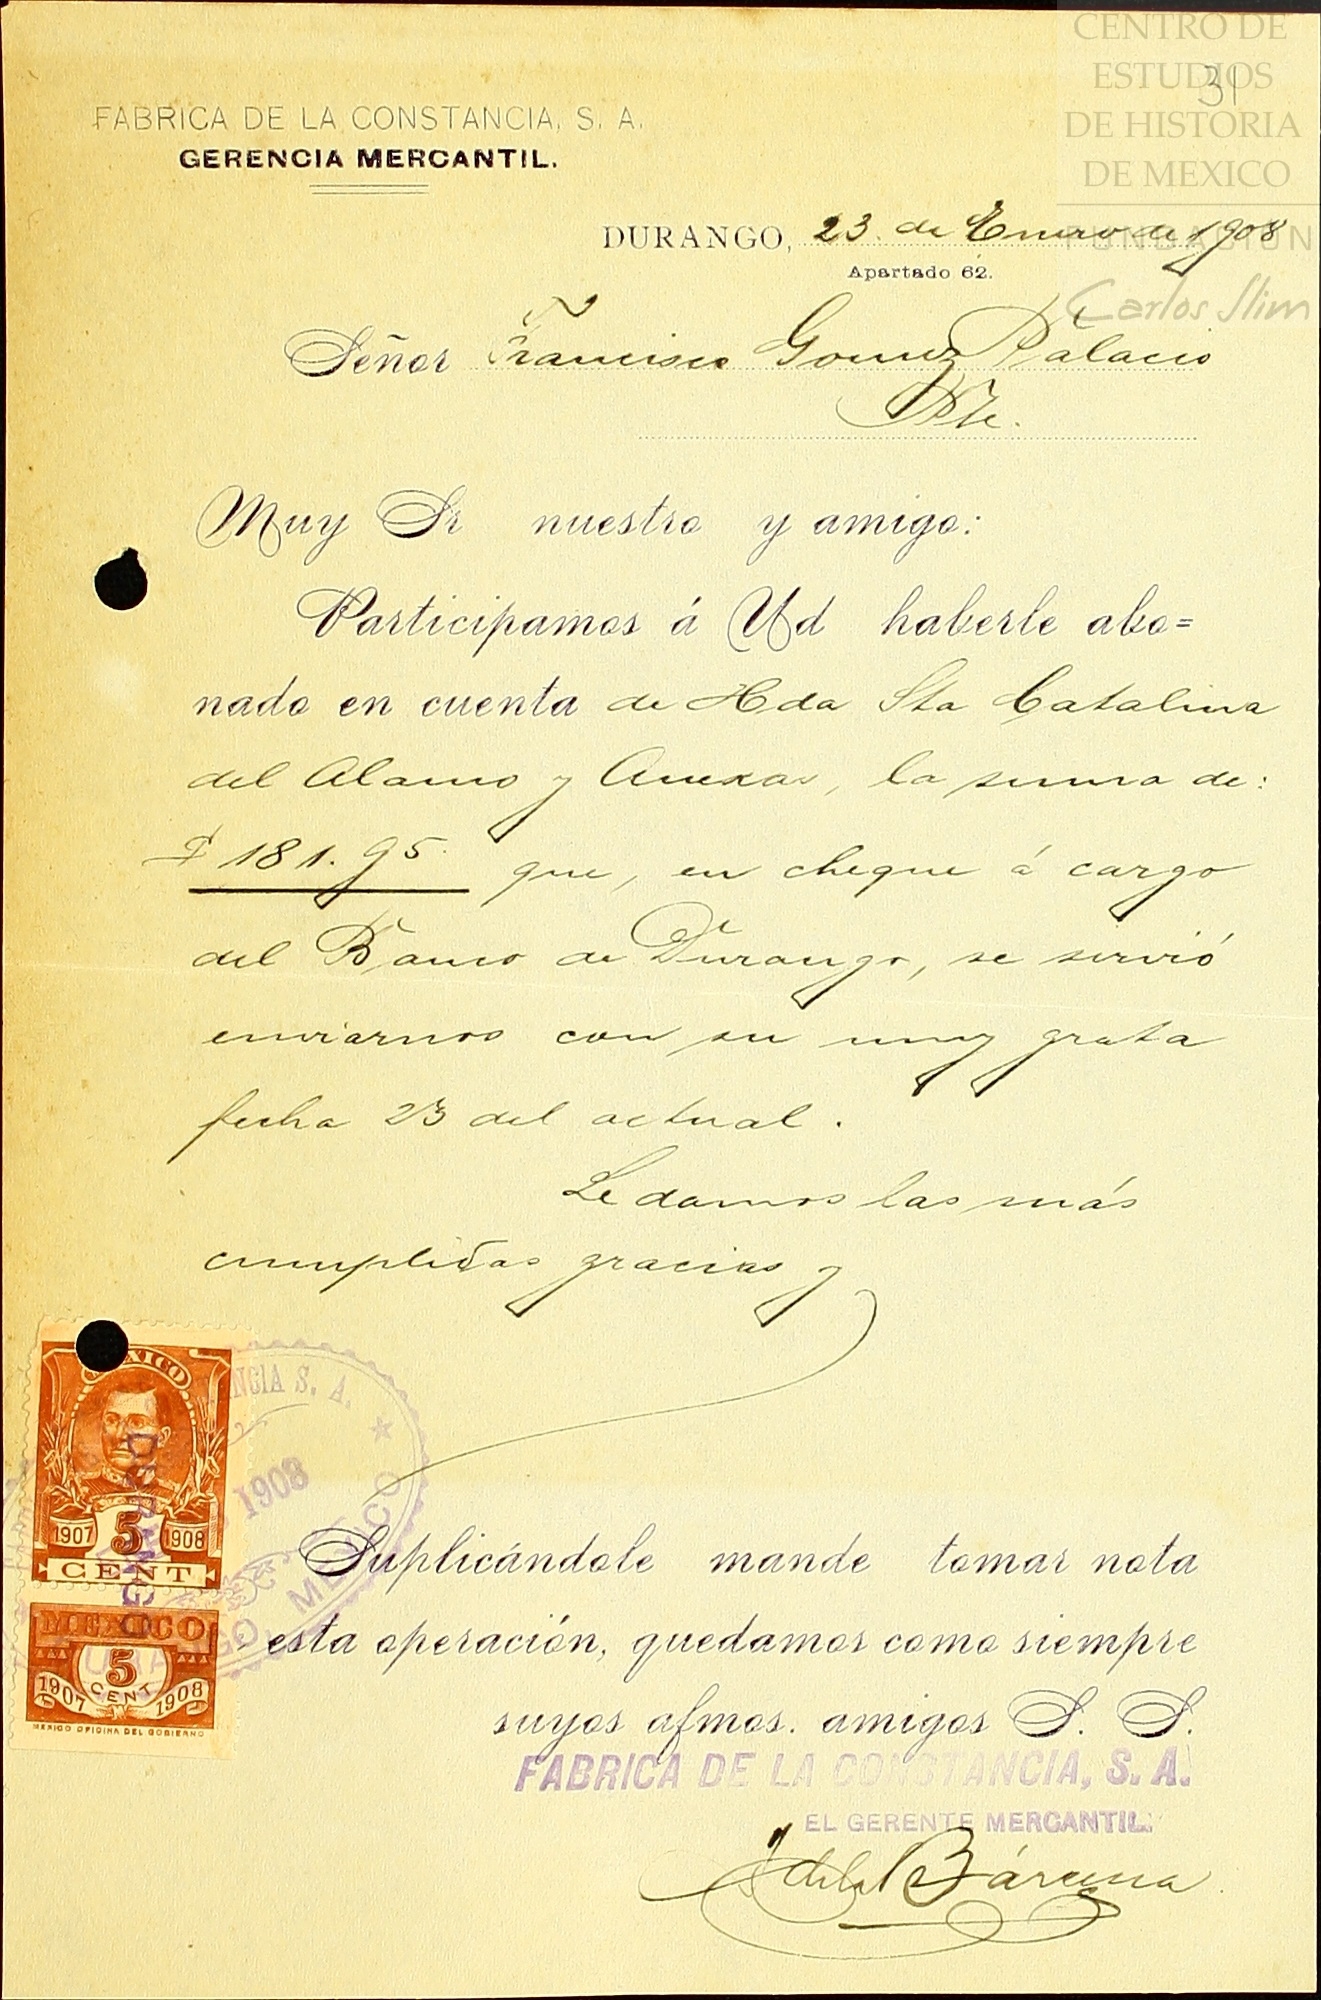 CENTRO DE
ESTUDIOS
DE HISTORIA
DE MEXICO
FUNDACIÓN
Carlos Slim
31
FABRICA DE LA CONSTANCIA, S. A.
GERENCIA MERCANTIL.
DURANGO, 23 de Enero de 1908
Apartado 62.
Señor Francisco Gomez Palacio
Pte.
Muy Sr nuestro y amigo:
Participamos á Ud haberle abo=
nado en cuenta de Hda Sta Catalina
del Alamo y Anexas, la suma de:
$ 181.95 que, en cheque á cargo
del Banco de Durango, se sirvió
enviarnos con su muy grata
fecha 23 del actual.
Le damos las más
cumplidas gracias y
Suplicándole mande tomar nota
esta operación, quedamos como siempre
suyos afmos. amigos S. S.
FABRICA DE LA CONSTANCIA, S. A.
EL GERENTE MERCANTIL.
Bárcena
MEXICO
1907 5 1908
CENT
MEXICO
5
CENT
1907 1908
MEXICO OFICINA DEL GOBIERNO
DURANGO
NCIA S. A.
1908
MEXICO